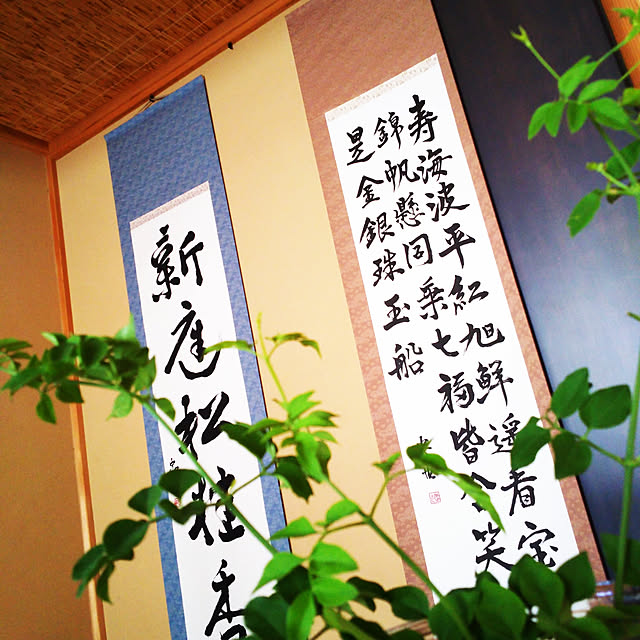 寿海波平紅旭鮮遥看宝
錦帆懸同乗七福皆含笑
昰金銀珠玉船
新庭松桂香